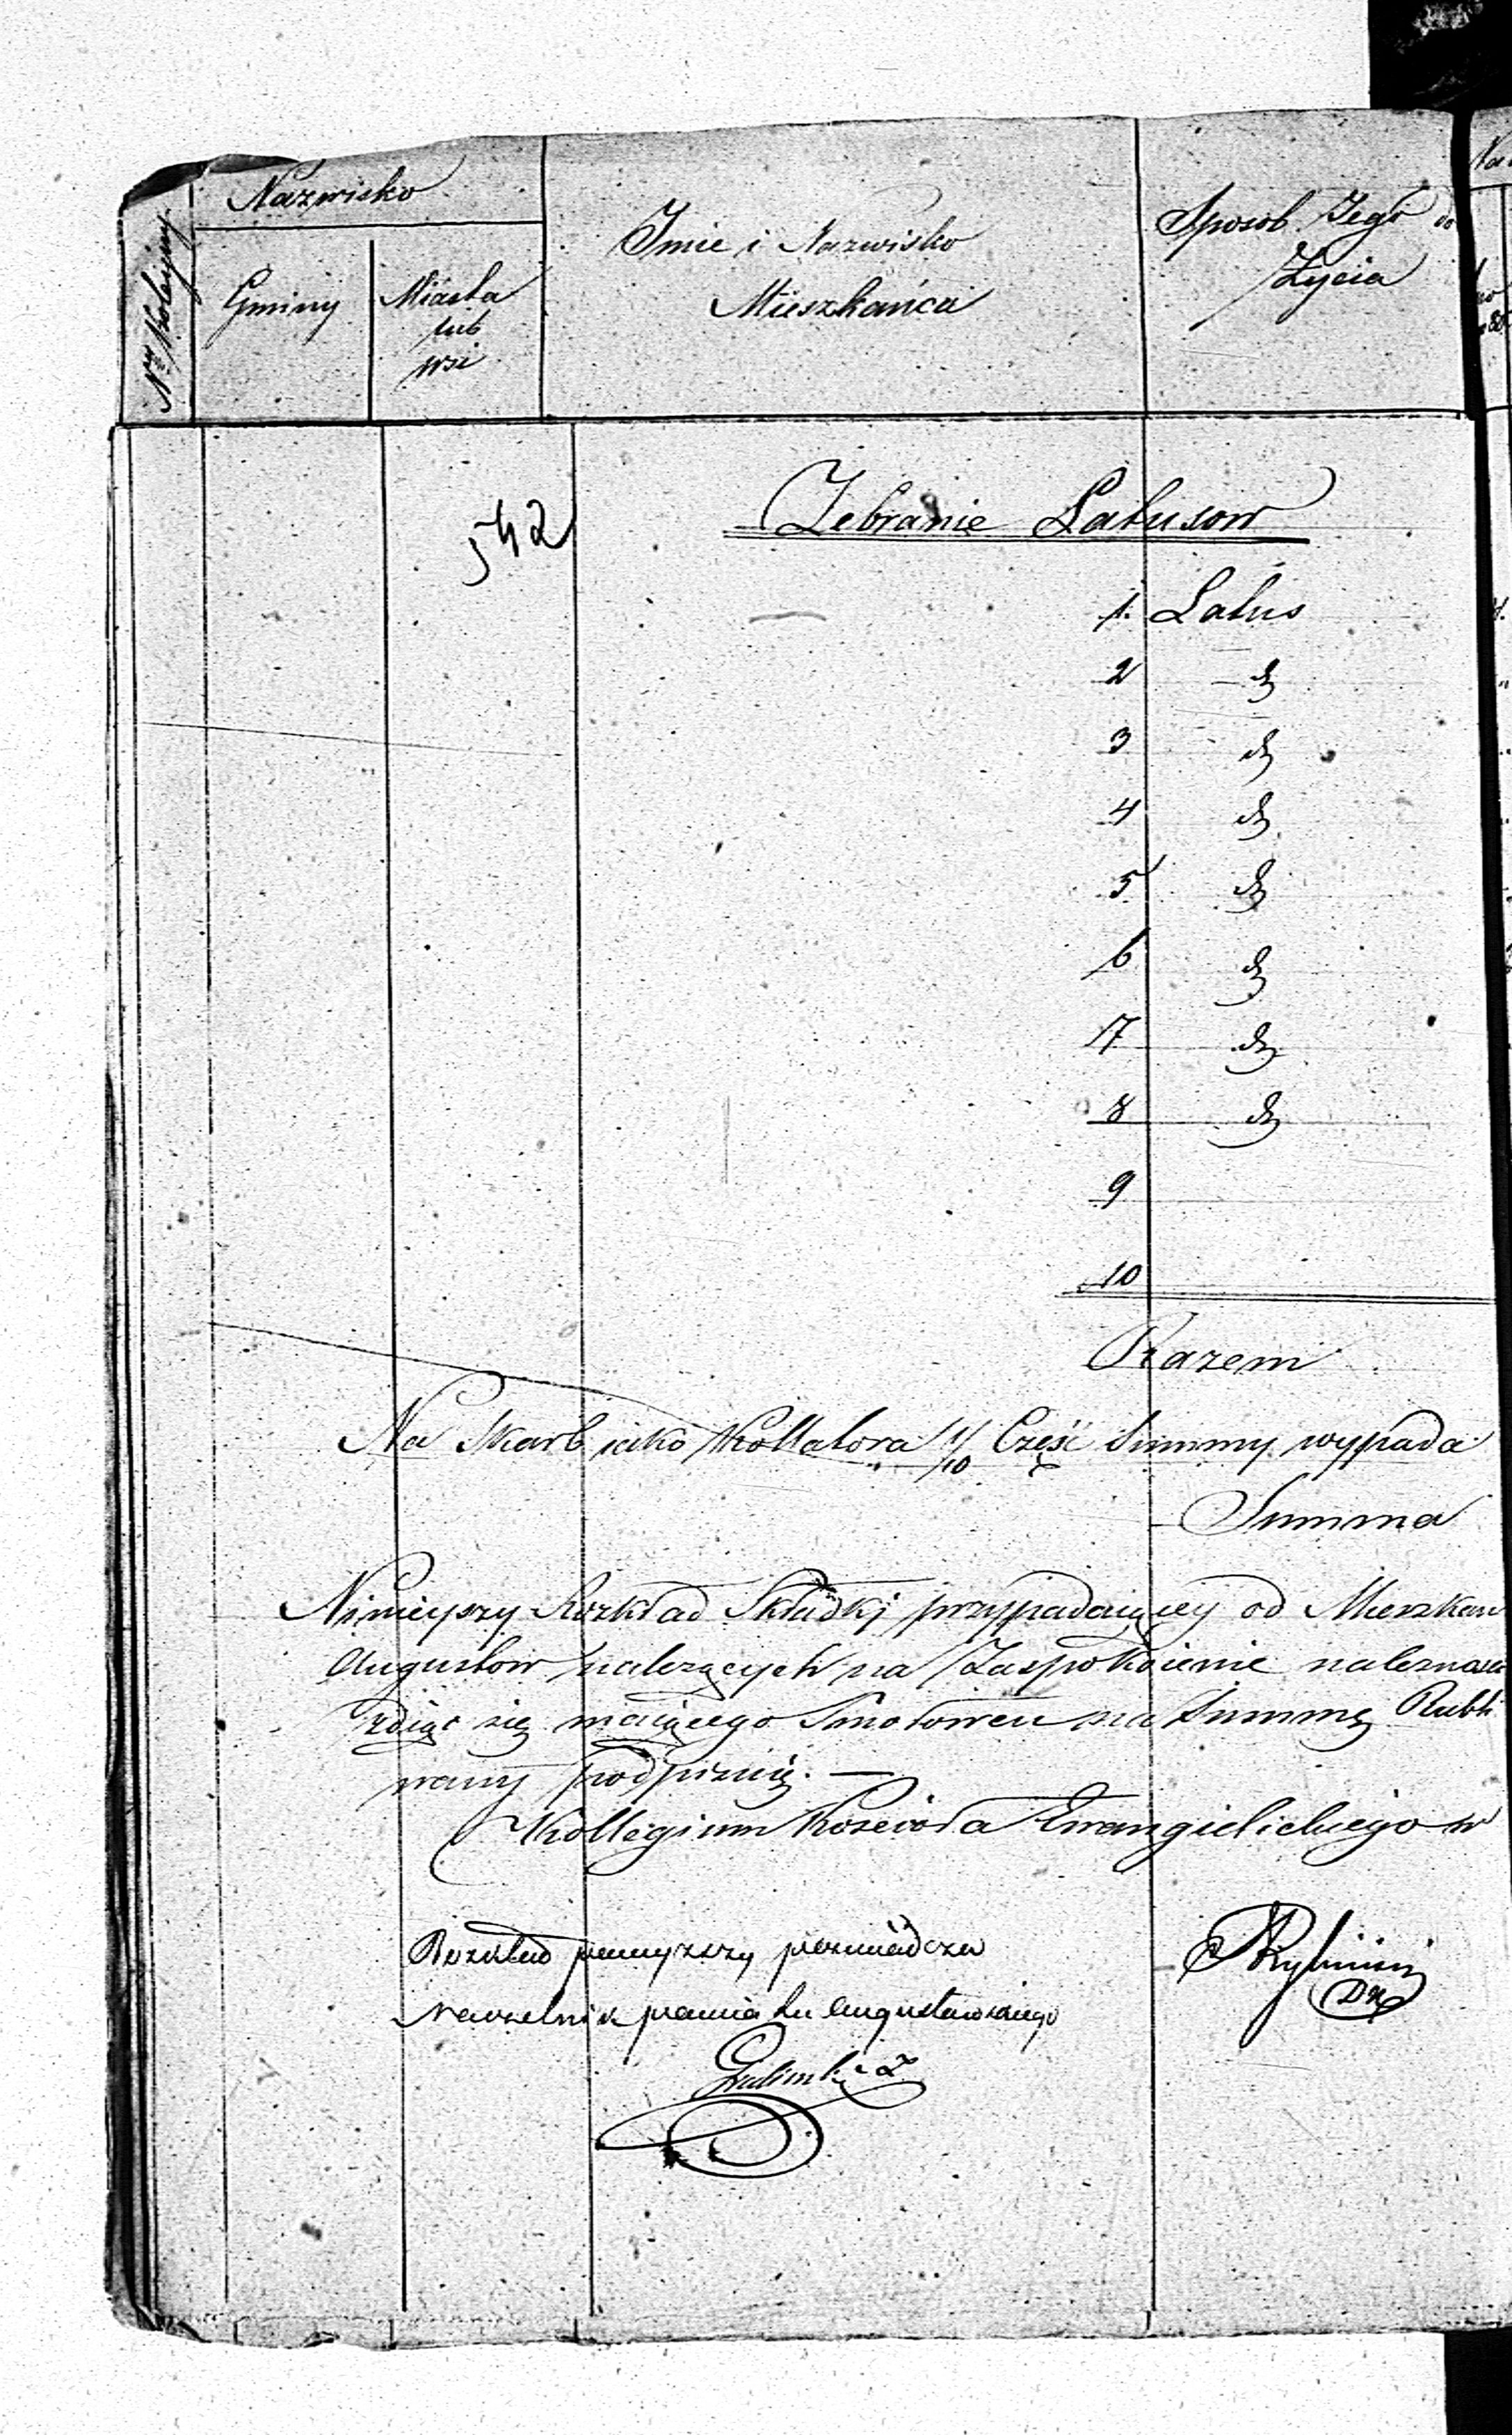 Nr Kolejny
Nazwisko
Gminy
Miasta
lub
wsi
Jmie i Nazwisko
Mieszkańca
Sposob Jego do
Życia
542
Zebranie Latusow
1. Latus
2 d
3 d
4 d
5 d
6 d
7 d
8 d
9
10
Razem
Na Skarb jako Kollatora 1/10 Część Summy wypada
Summa
Ninieyszy Rozkład Składki przypadaiącey od Mieszkan
Augustow należących na Zaspokoienie należnosci
zdiąć się maiącego na Summę Rubli
podpisuię. —
Kollegium Koscioła Ewangielickiego w
Rozkład poswiadcza
Naczelnik Powiatu Augustowskiego